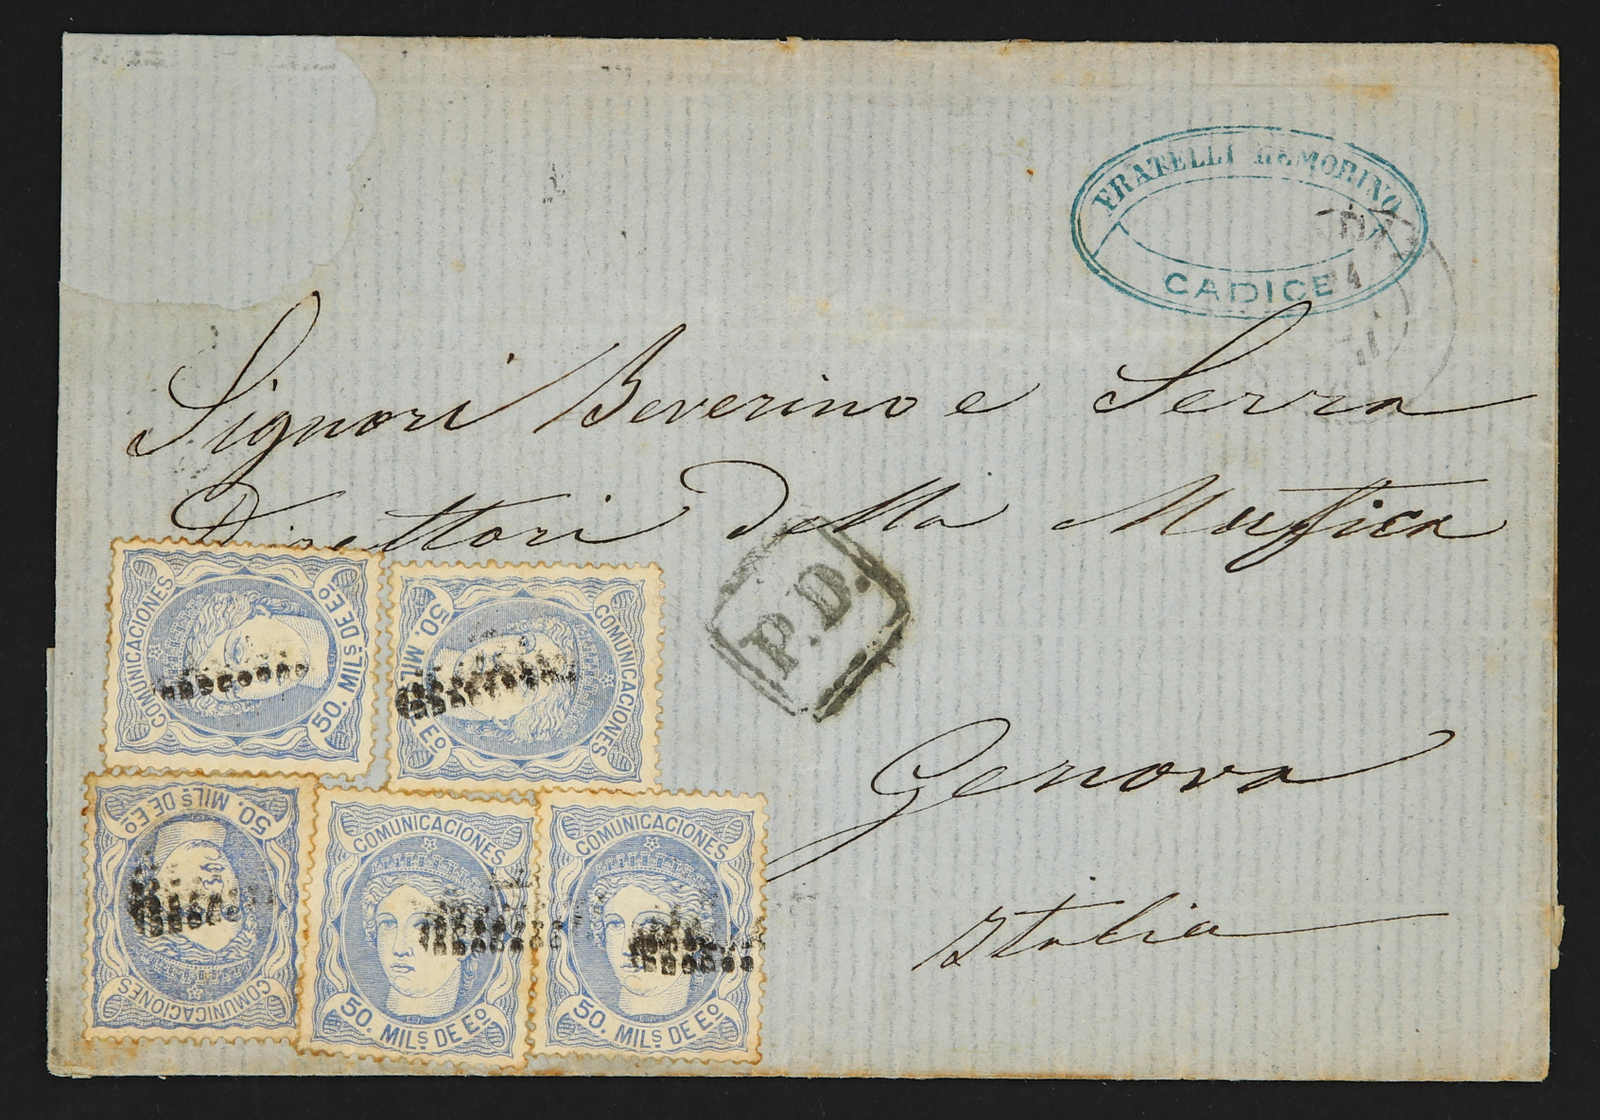 FRATELLI REMORINO
CADICE
Signori Beverino e Serra
Direttori della
P.D.
Genova
Italia
COMUNICACIONES
50. MILS DE Eo
COMUNICACIONES
50. MILS Eo
50. MILS DE Eo
COMUNICACIONES
COMUNICACIONES
50. MILS DE Eo
COMUNICACIONES
50. MILS DE Eo